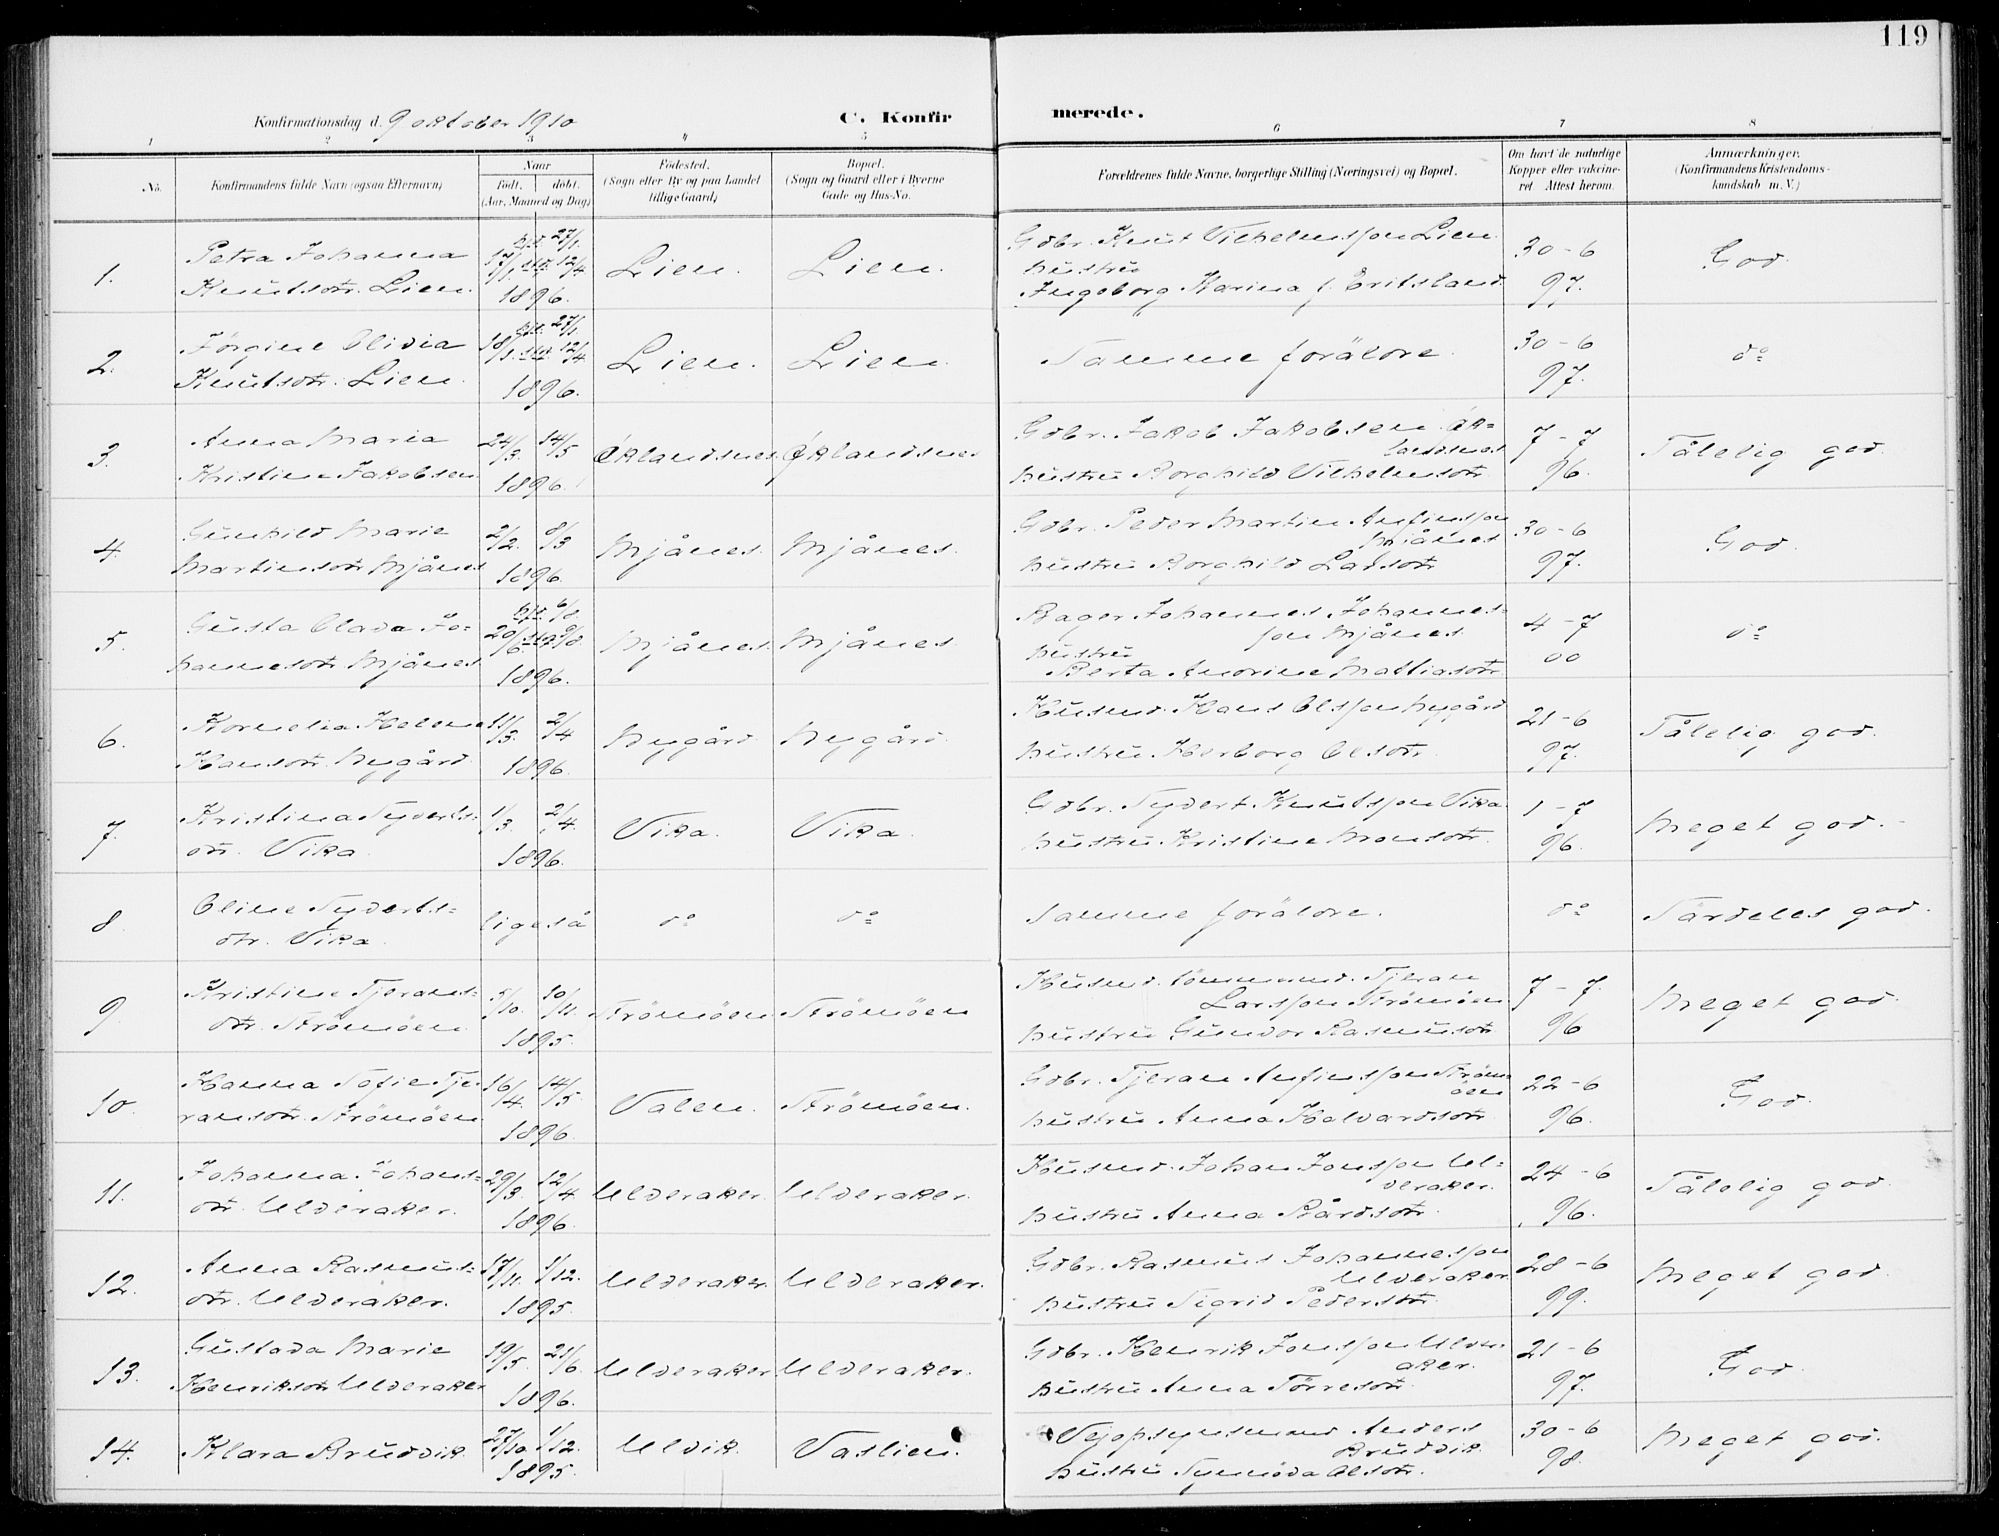 119
Konfirmationsdag d. 9 oktober 1910
C. Konfirmerede.
1 2 3 4 5 6 7 8
No.
Konfirmandens fulde Navn (ogsaa Efternavn)
Naar
født. døbt.
(Aar, Maaned og Dag)
Fødested.
(Sogn eller By og paa Landet
tillige Gaard)
Bopæl.
(Sogn og Gaard eller i Byerne
Gade og Hus-No.
Forældrenes fulde Navne, borgerlige Stilling (Næringsvei) og Bopæl.
Om havt de naturlige
Kopper eller vakcine-
ret Attest herom.
Anmærkninger.
(Konfirmandens Kristendoms-
kundskab m. V.)
1. Petra Johanna
Knutsdtr. Lien.
17/1 hjd. 27/1. std. 12/4
1896.
Lien. Lien.
Gdbr. Knut Vilhelmsson Lien
hustru
Ingeborg Karina f. Eritsland
30-6
97.
God.
2. Jørgine Olivia
Knutsdtr. Lien.
18/1. hjd. 27/1. std. 12/4.
1896.
Lien. Lien.
Samme forældre.
30-6
97.
do
3. Anna Maria
Kristine Jakobsen
24/3. 14/5
1896.
Øklandsnes. Øklandsnes
Gdbr. Jakob Jakobsen Øk-
landsnes
hustru Borghild Vilhelmsdtr.
7-7
96.
Tålelig god.
4. Gunhild Marie
Martinsdtr. Mjånes
2/2. 8/3
1896.
Mjånes. Mjånes.
Gdbr. Peder Martin Anfinsson
Mjånes
hustru Borghild Larsdtr.
30-6
97.
God.
5. Gusta Olava Jo-
hannesdtr. Mjånes
20/6. hjd. 6/8. std. 9/8.
1896.
Mjånes. Mjånes.
Bager Johannes Johannes-
son Mjånes
hustru
Berta Andrine Mattiasdtr.
4-7
00
do
6. Kornelia Helene
Hansdtr. Nygård.
11/3. 2/4
1896.
Nygård. Nygård.
Husmd. Hans Olsson Nygård
hustru Herborg Olsdtr.
21-6
97.
Tålelig god.
7. Kristina Sjyverts-
dtr. Vika.
1/3. 2/4.
1896.
Vika. Vika.
Gdbr. Syvert Knutsson Vika
hustru Kristine Monsdtr.
1-7
96.
Meget god.
8. Oline Syverts-
dtr. Vika.
ligeså do do
Samme forældre.
do
Særdeles god.
9. Kristine Tjerans-
dtr. Strömöen.
5/10. 10/11.
1895.
Strömöen. Strömöen
Husmd. tömmermd. Tjeran
Larsson Strömöen
hustru Gundor Rasmusdtr
7-7.
96
Meget god.
10. Hanna Sofie Tje-
ransdtr. Strömöen
16/4. 14/5.
1896.
Valen. Strömöen.
Gdbr. Tjeran Anfinsson Ström-
öen
hustru Anna Halvardsdtr.
22-6
96.
God.
11. Johanna Johans-
dtr. Ulveraker.
29/3. 12/4.
1896.
Ulveraker. Ulveraker.
Husmd. Johan Jonsson Ul-
veraker.
hustru Anna Bårdsdtr.
24-6
96.
Tålelig god.
12. Anna Rasmus-
dtr. Ulveraker.
17/11. 1/12.
1895.
Ulveraker. Ulveraker.
Gdbr. Rasmus Johannesson
Ulveraker
hustru Sigrid Pedersdtr.
28-6
99.
Meget god.
13. Gustava Marie
Henriksdtr. Ulveraker
19/5. 21/6.
1896.
Ulveraker. Ulveraker.
Gdbr. Henrik Jonsson Ulver-
aker.
hustru Anna Törresdtr.
21-6
97.
God.
14. Klara Bruvik.
27/10. 1/12.
1895.
Ulvik. Vaslien.
Vejopsynsmand Anders
Bruvik.
hustru Synnöva Olsdtr.
30-6
98.
Meget god.